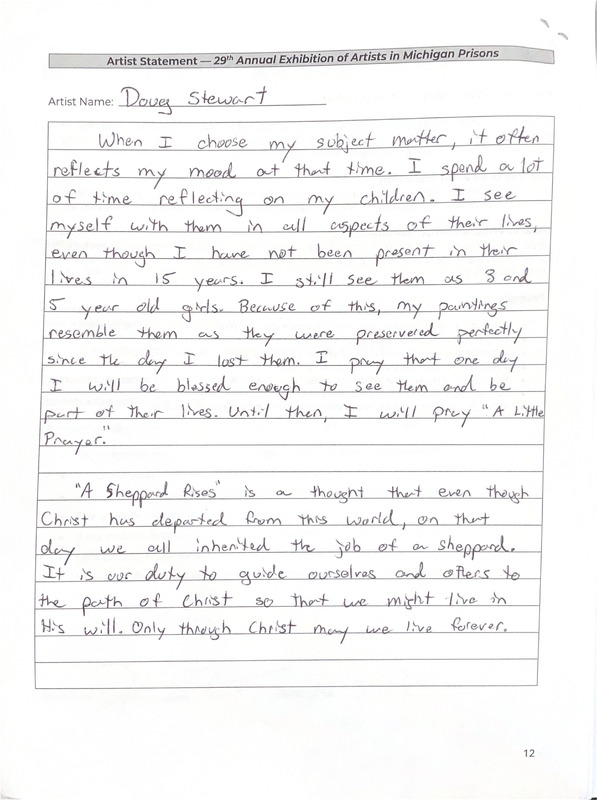 Artist Statement — 29th Annual Exhibition of Artists in Michigan Prisons
Artist Name: Doug Stewart
When I choose my subject matter, it often
reflects my mood at that time. I spend a lot
of time reflecting on my children. I see
myself with them in all aspects of their lives,
even though I have not been present in their
lives in 15 years. I still see them as 3 and
5 year old girls. Because of this, my paintings
resemble them as they were preservered perfectly
since the day I lost them. I pray that one day
I will be blessed enough to see them and be
part of their lives. Until then, I will pray "A Little
Prayer."
"A Sheppard Rises" is a thought that even though
Christ has departed from this world, on that
day we all inherited the job of a sheppard.
It is our duty to guide ourselves and others to
the path of Christ so that we might live in
His will. Only through Christ may we live forever.
12